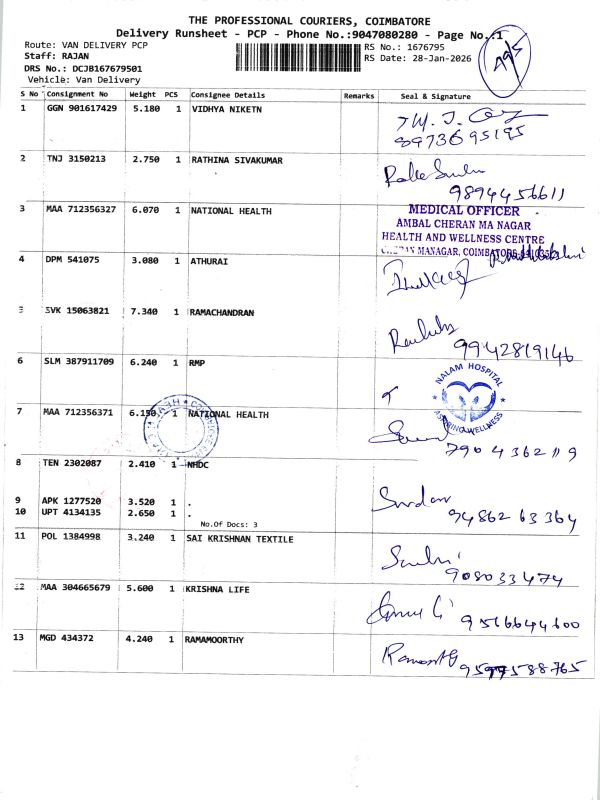 THE PROFESSIONAL COURIERS, COIMBATORE
Delivery Runsheet - PCP - Phone No.:9047080280 - Page No.:1
Route: VAN DELIVERY PCP
Staff: RAJAN
DRS No.: DCJB167679501
Vehicle: Van Delivery
RS No.: 1676795
RS Date: 28-Jan-2026
S No Consignment No Weight PCS Consignee Details Remarks Seal & Signature
1 GGN 901617429 5.180 1 VIDHYA NIKETN
8973695195
2 TNJ 3150213 2.750 1 RATHINA SIVAKUMAR
9894456611
3 MAA 712356327 6.070 1 NATIONAL HEALTH
MEDICAL OFFICER
AMBAL CHERAN MA NAGAR
HEALTH AND WELLNESS CENTRE
4 DPM 541075 3.080 1 ATHURAI
5 SVK 15063821 7.340 1 RAMACHANDRAN
9942819146
6 SLM 387911709 6.240 1 RMP
NALAM HOSPITAL
ASPIRING WELLNESS
7 MAA 712356371 6.150 1 NATIONAL HEALTH
7904362119
8 TEN 2302087 2.410 1 NHDC
9 APK 1277520 3.520 1 .
10 UPT 4134135 2.650 1 .
No.Of Docs: 3
9486263364
11 POL 1384998 3.240 1 SAI KRISHNAN TEXTILE
908033474
12 MAA 304665679 5.600 1 KRISHNA LIFE
9566644600
13 MGD 434372 4.240 1 RAMAMOORTHY